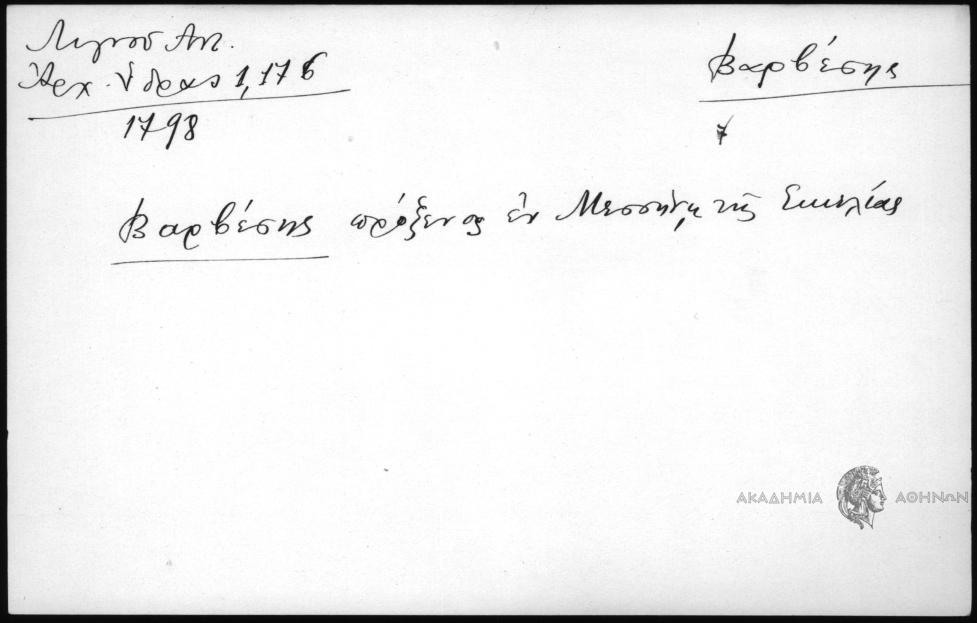 Λιγνού Αντ.
Ἀρχ. Ὕδρας 1,176
1798
Βαρβέσης
7
Βαρβέσης πρόξενος ἐν Μεσσήνῃ τῆς Σικελίας
ΑΚΑΔΗΜΙΑ ΑΘΗΝΩΝ